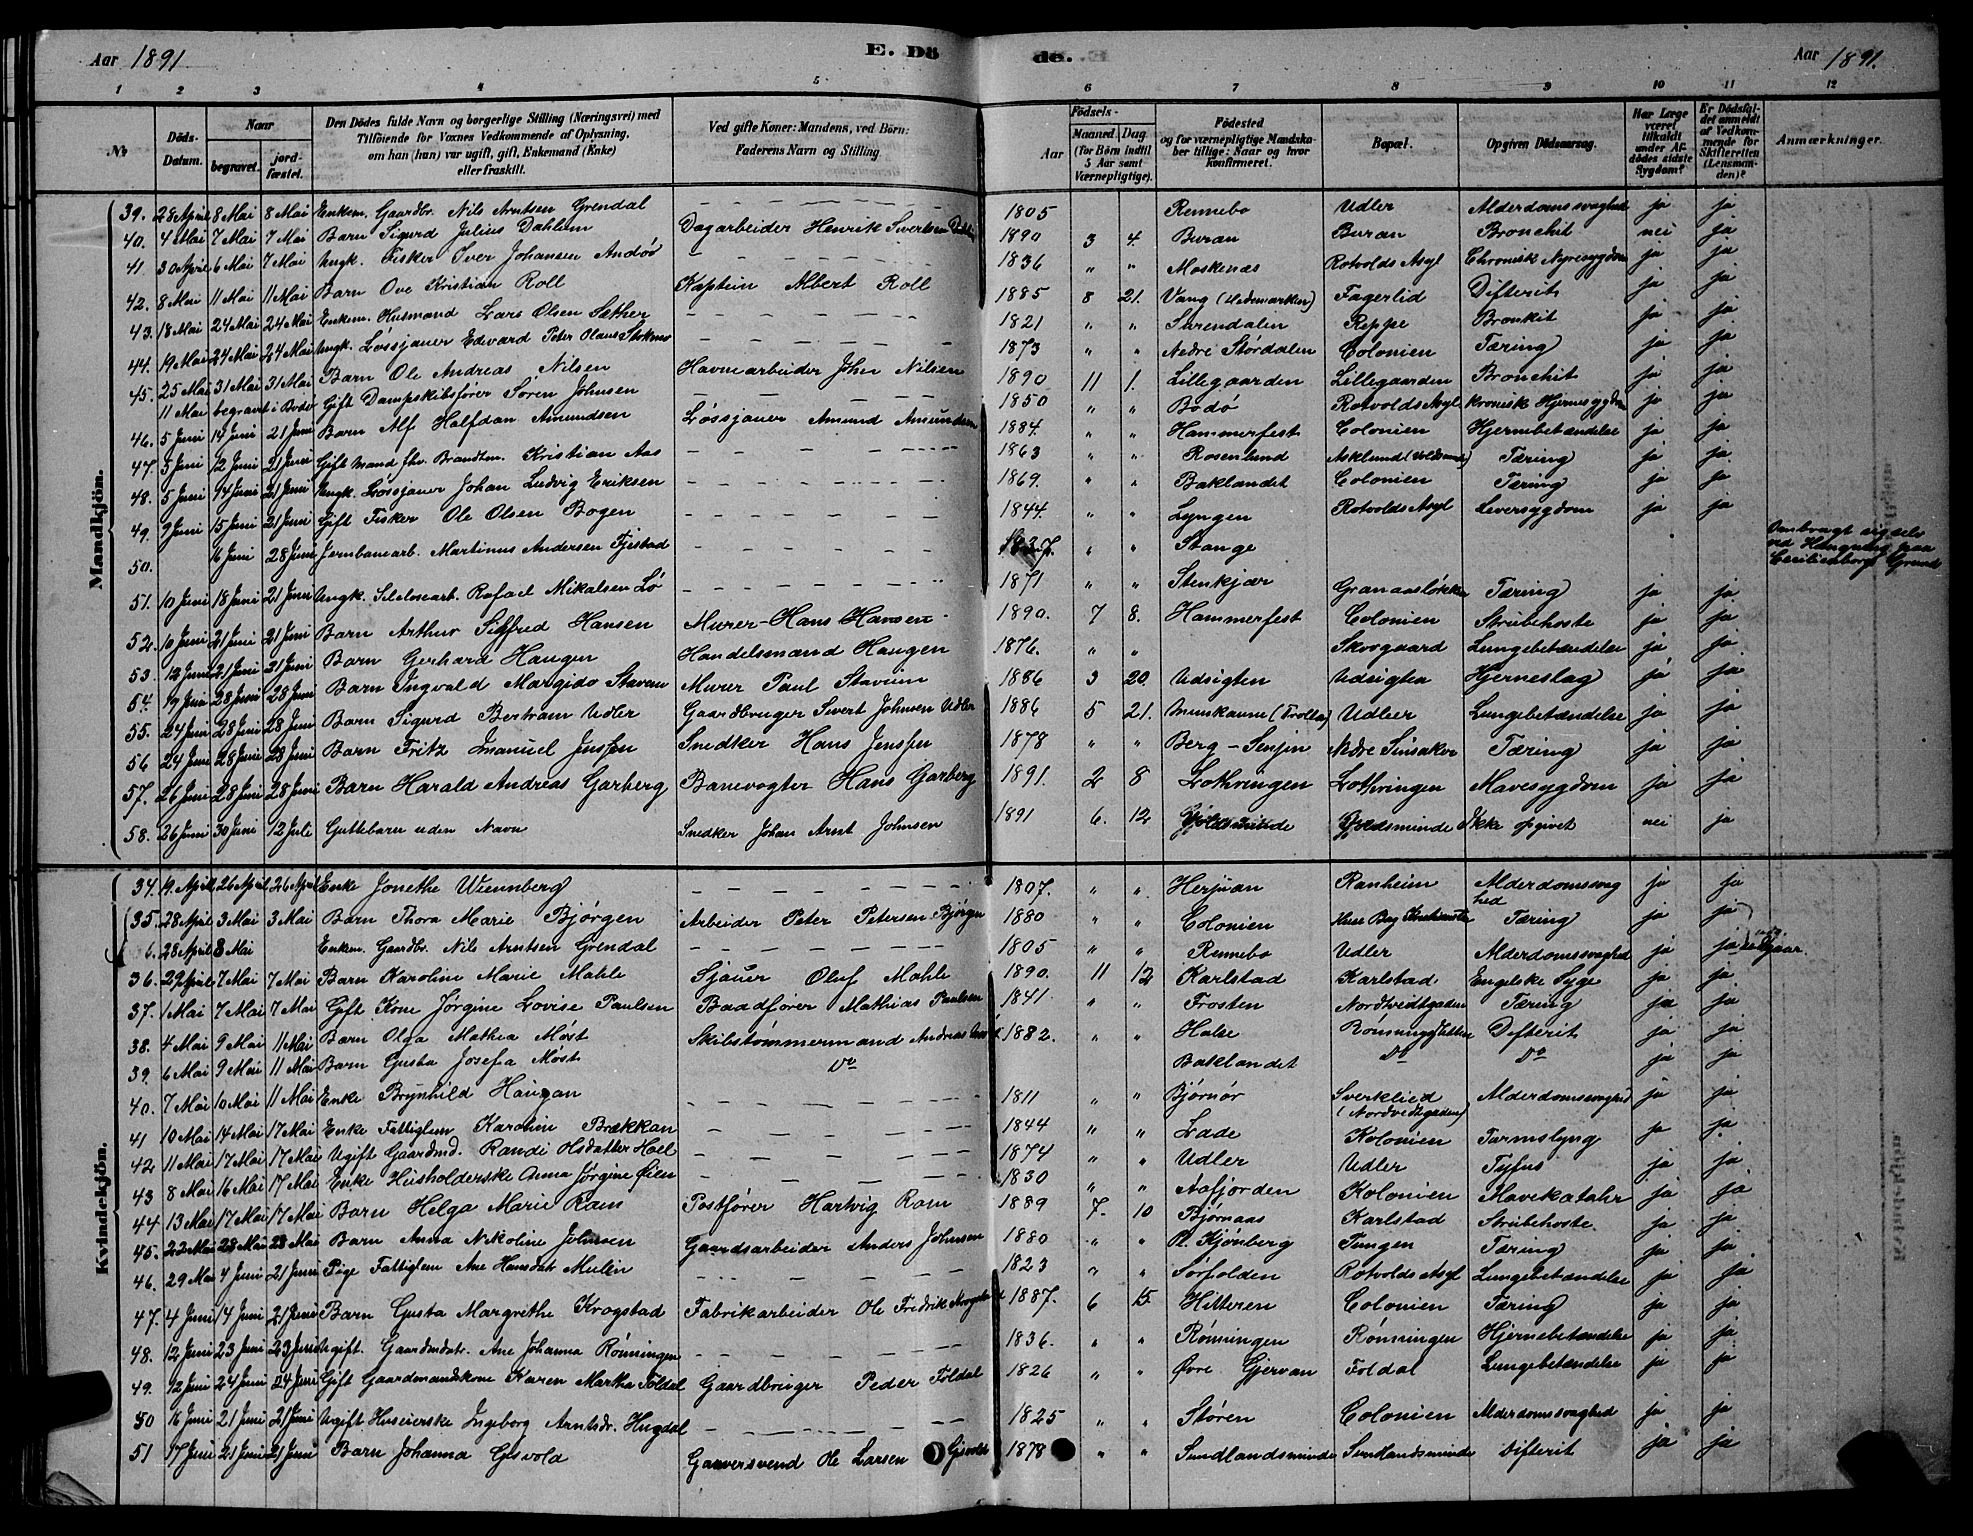 Aar 1891
E. Dö
de.
Aar 1891.
1 2 3 4 5 6 7 8 9 10 11 12
No
Döds-Datum.
Naar
begravet.
jord-fæstet.
Den Dödes fulde Navn og borgerlige Stilling (Næringsvei) med
Tilföiende for Voxnes Vedkommende af Oplysning,
om han (hun) var ugift, gift, Enkemand (Enke)
eller fraskilt.
Ved gifte Koner: Mandens, ved Börn:
Faderens Navn og Stilling
Födsels-
Aar
Maaned Dag
(for Börn indtil
5 Aar samt
Værnepligtige).
Födested
og for værnepligtige Mandska-
ber tillige: Naar og hvor
konfirmeret.
Bopæl.
Opgiven Dödsaarsag.
Har Læge
været
tilkaldt
under Af-
dödes sidste
Sygdom?
Er Dödsfal-
det anmeldt
af Vedkom-
mende for
Skifteretten
(Lensman-
den)?
Anmærkninger.
Mandkjön.
39. 28 April 8 Mai 8 Mai Enkem. Gaardbr. Nils Arntsen Grendal 1805 Rennebo Udler Alderdomssvaghed ja ja
40. 4 Mai 7 Mai 7 Mai Barn Sigurd Julius Dahlum Dagarbeider Henrik Sivertsen 1890 3 4. Buran Buran Bronchit nei ja
41. 30 April 6 Mai 7 Mai Ungk. Fisker Iver Johansen Andör 1836 " " Moskenæs Rotvolds Asyl Chronisk Nyresygdom ja ja
42. 8 Mai 11 Mai 11 Mai Barn Ove Kristian Roll Kaptein Albert Roll 1885 8 21. Vang (Hedemarken) Fagerlid Difterit ja ja
43. 18 Mai 24 Mai 24 Mai Enkem. Husmand Lars Olsen Sæther 1821 " " Surendalen Reppe Bronkit ja ja
44. 19 Mai 24 Mai 24 Mai Ungk. Løssjauer Edvard Peter Olaus 1873 " " Nedre Stördalen Colonien Tæring ja ja
45. 25 Mai 31 Mai 31 Mai Barn Ole Andreas Nilsen Havnearbeider Johan Nilsen 1890 11 1. Lillegaarden Lillegaarden Bronchit ja ja
11 Mai begravet i Bodø Gift Dampskibsfører Søren Johnsen 1850 " " Bodö Rotvolds Asyl Kronisk Hjernesygdom ja ja
46. 5 Juni 14 Juni 21 Juni Barn Alf Halfdan Amundsen Løssjauer Amund Amundsen 1884. " " Hammerfest Colonien Hjernebetændelse ja ja
47. 5 Juni 12 Juni 21 Juni Gift Mand fhv. Brandtm. Kristian Aas 1863 " " Rosenlund Asklund Tæring ja ja
48. 5 Juni 14 Juni 21 Juni Ungk. Løssjauer Johan Ludvig Eriksen 1869. " " Baklandet Colonien Tæring ja ja
49. 9 Juni 15 Juni 21 Juni Gift Fisker Ole Olsen Bogen 1844. " " Lyngen Rotvolds Asyl Leversygdom ja ja
50. 6 Juni 28 Juni Jernbanearb. Martinus Andersen Fjestad 1837. " " Stange Ombragt sigselv
ved Hængning paa
Cecilienborgs Grund
51. 10 Juni 18 Juni 21 Juni Ungk. Rafael Mikalsen Lö 1871 " " Stenkjær Granaasløkken Tæring ja ja
52. 10 Juni 21 Juni 21 Juni Barn Arthur Sigfred Hansen Murer Hans Hansen 1890. 7 8. Hammerfest Colonien Strubehoste ja ja
53. 12 Juni 21 Juni 21 Juni Barn Gerhard Haugen Handelsmand Haugen 1876. " " Skovgaard Lungebetændelse ja ja
54. 19 Juni 28 Juni 28 Juni Barn Ingvald Margido Stavem Murer Paul Stavem 1886 3 20. Udsigten Udsigten Hjerneslag ja ja
55. 24 Juni 28 Juni 28 Juni Barn Sigurd Bertram Udler Gaardbruger Sivert Johnsen Udler 1886 5 21. Munkaune (Trolla) Udler Lungebetændelse ja ja
56 24 Juni 28 Juni 28 Juni Barn Fritz Imanuel Jenssen Snedker Hans Jenssen 1878 " " Berg - Senjen Nedre Sinsaker Tæring ja ja
57. 26 Juni 28 Juni 28 Juni Barn Harald Andreas Garberg Banevogter Hans Garberg 1891. 2 8 Lothringen Lothringen Mavesygdom ja ja
58. 26 Juni 30 Juni 12 Juli Guttebarn uden Navn Snedker Johan Arnt Johnsen 1891 6. 12 Gjeldsminde Gjeldsminde Ikke opgivet nei ja
Kvindekjön.
34. 19. April 26 April 26 April Enke Jonethe Wiennberg 1807. " " Herjuan Ranheim Alderdomssvag
hed ja ja
35. 28 April 3 Mai 3 Mai Barn Thora Marie Bjørgen Arbeider Peter Petersen Bjørgen 1880 " " Colonien Tæring ja ja
6. 28 April 8 Mai Enkem. Gaardbr. Nils Arntsen Grendal 1805 " " Rennebo Udler Alderdomssvaghed ja ja udgaar.
36. 29 April 7 Mai 7 Mai Barn Karoline Marie Mahle Sjauer Oluf Mahle 1890. 11 12 Karlstad Karlstad Engelske Syge ja ja
37. 1 Mai 7 Mai 7 Mai Gift Kone Jørgine Lovise Paulsen Baadfører Mathias Paulsen 1841. " " Frosten Nordtvedtgaden Tæring ja ja
38. 4 Mai 9 Mai 11 Mai Barn Olga Mathea Möst Skibstømmermand Andreas 1882. " " Halse Rønningsletten Difterit ja ja
39. 6 Mai 9 Mai 11 Mai Barn Gusta Josefa Möst Do Baklandet Do Do ja ja
40. 7 Mai 10 Mai 11 Mai Enke Brynhild Haugan 1811 " " Bjørnör Sverklied
(Nordvedtgaden) Alderdomssvaghed ja ja
41 10 Mai 14 Mai 17 Mai Enke Fattiglem Karoline Brækkan 1844 " " Lade Kolonien Tarmslyng ja ja
42 11 Mai 17 Mai 17 Mai Ugift Gaardmd. Randi Olsdatter Moel 1874 " " Udler Udler Tyfus ja ja
43 8 Mai 16 Mai 17 Mai Enke Husholderske Anna Jørgine Øien 1830 " " Aafjorden Kolonien Mavekatahr ja ja
44 13 Mai 17 Mai 17 Mai Barn Helga Marie Ram Postfører Hartvig Ram 1889 7. 10 Bjørnaas Karlstad Strubehoste ja ja
45. 22 Mai 28 Mai 28 Mai Barn Anna Nikoline Johnsen Gaardsarbeider Anders Johnsen 1880 " " Pl. Kjønberg Tungen Tæring ja ja
46. 29 Mai 4 Juni 21 Juni Pige Fattiglem Ane Hansdatr Mulen 1823 " " Sørfolden Rotvolds Asyl Lungebetændelse ja ja
47. 4 Juni 14 Juni 21 Juni Barn Gusta Margrethe Krogstad Fabrikarbeider Ole Fredrik Krogstad 1887. 6 15 Hitteren Colonien Tæring ja ja
48. 12 Juni 23 Juni 23 Juni Ugift. Gaardmdatr. Ane Johanna Rønningen 1836. " " Rønningen Rønningen Hjernebetændelse ja ja
49. 12 Juni 24 Juni 24 Juni Gift Gaardmandskone Karen Martha Foldal Gaardbruger Peder Foldal 1826 " " Øvre Gjervan Foldal Lungebetændelse ja ja
50 16 Juni 21 Juni 21 Juni Ugift Huseierske Ingeborg Arntsdr. Hugdal 1825 " " Støren Colonien Alderdomssvaghed ja ja
51 17 Juni 21 Juni 21 Juni Barn Johanna Gisvold Garversvend Ole Larsen Gisvold 1878 " " Sundlandsminde Sundlandsminde Difterit ja ja